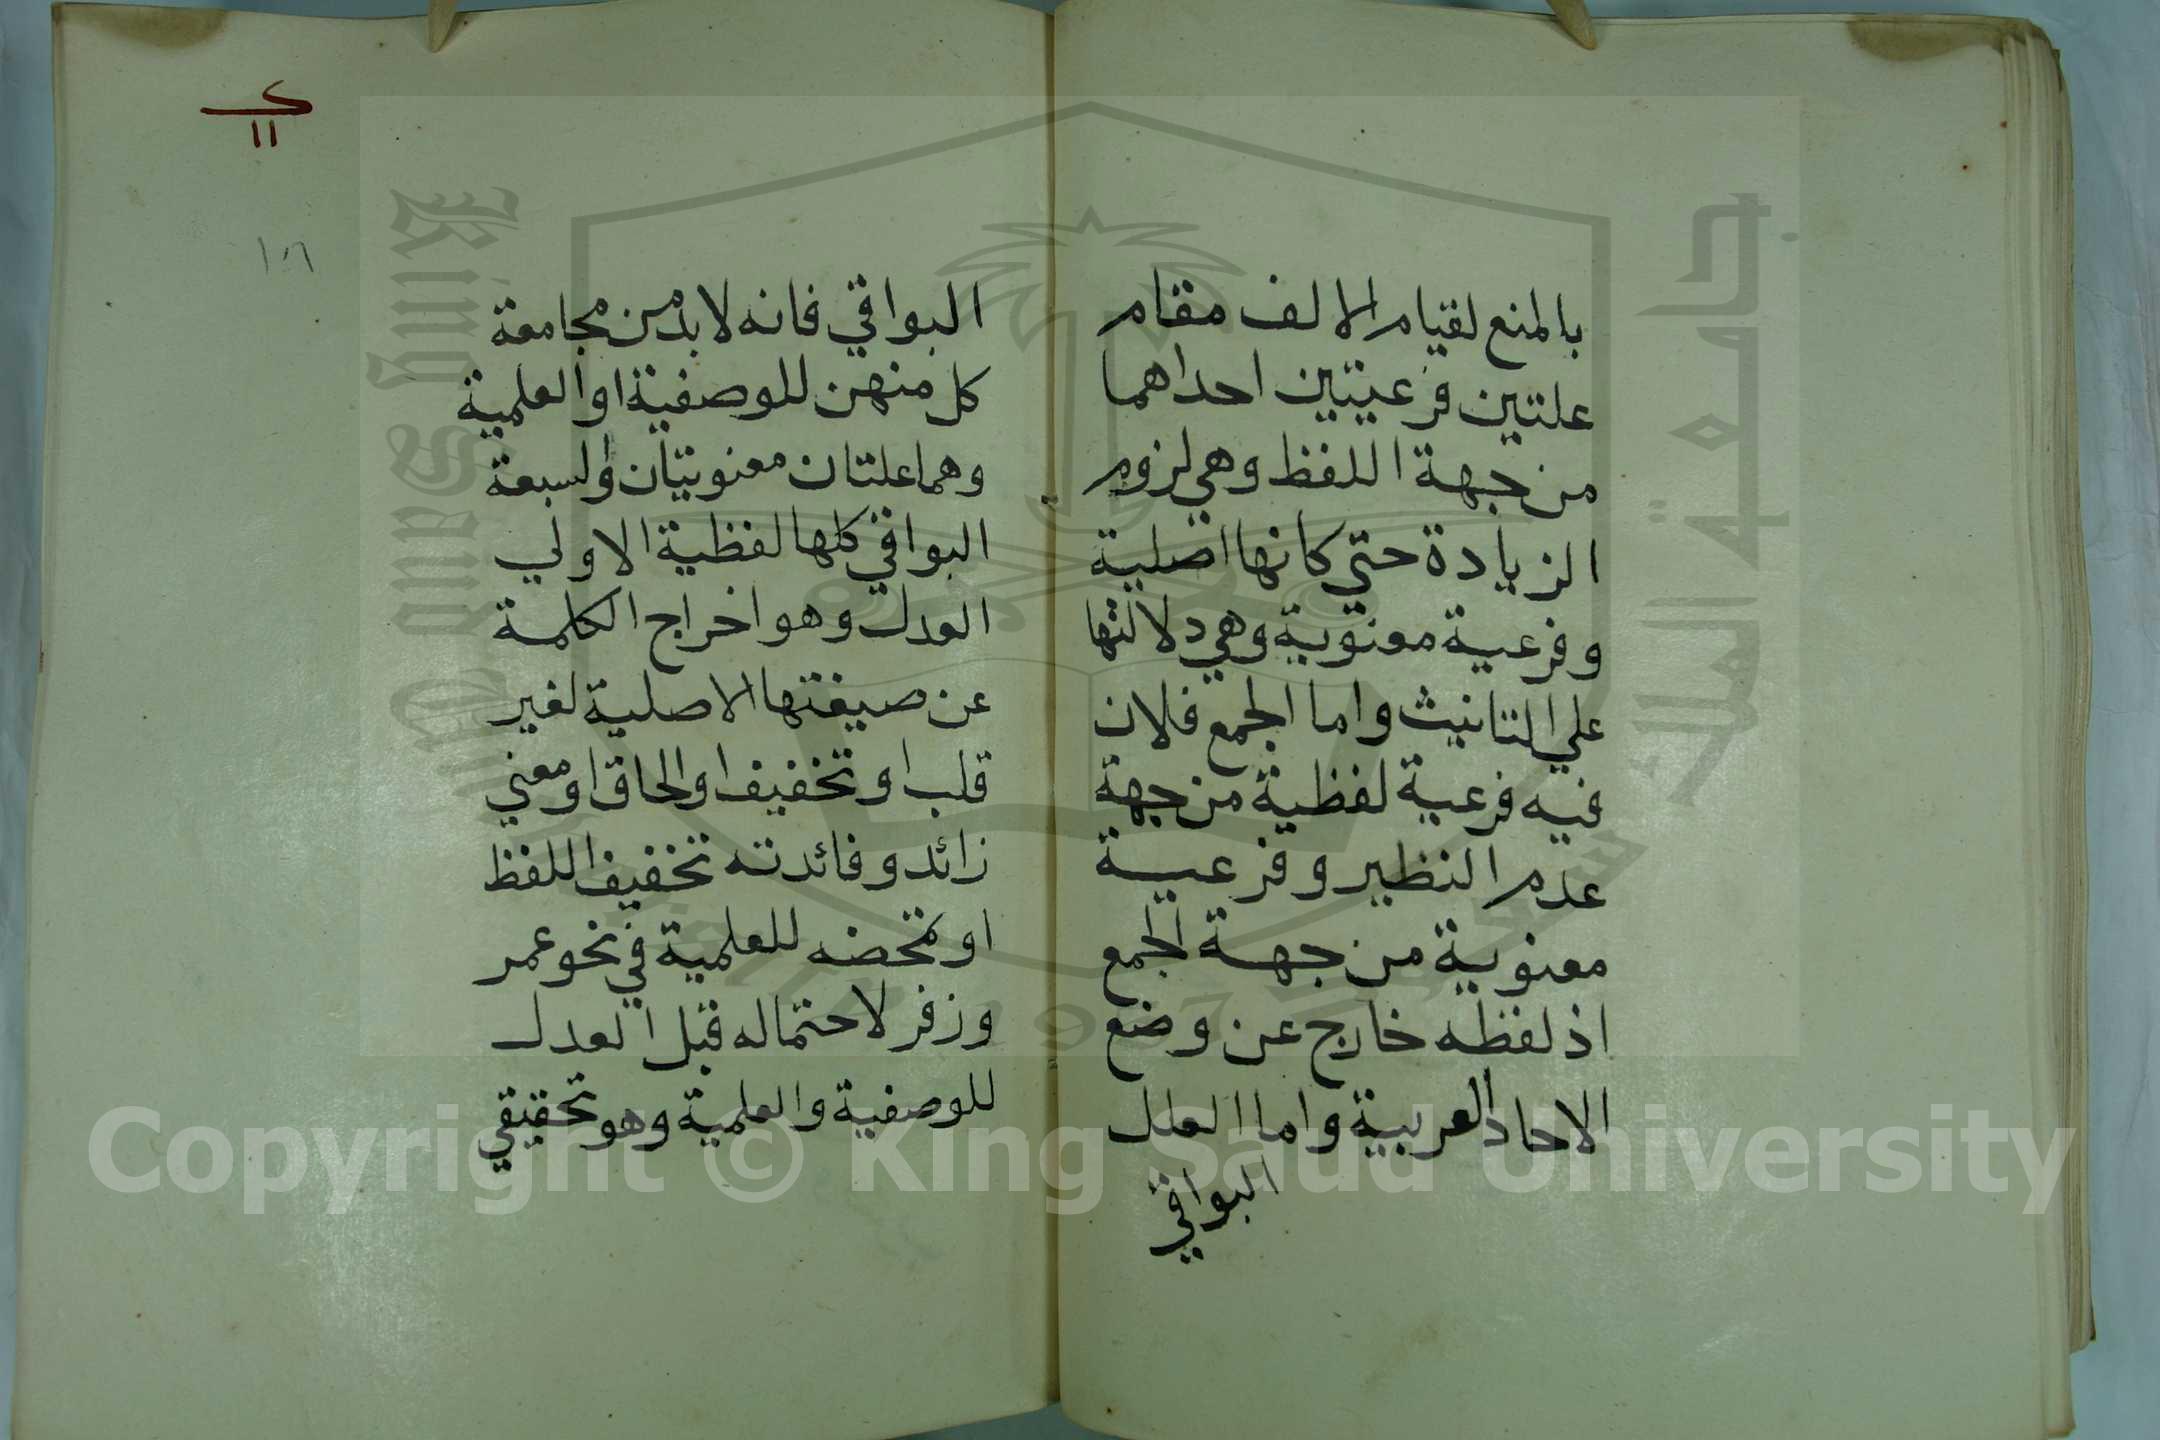 بالمنع لقيام الالف مقام
علتين فرعيتين احداهما
من جهة اللفظ وهي لزوم
الزيادة حتي كانها اصلية
وفرعية معنوية وهي دلالتها
علي التانيث واما الجمع فلان
فيه فرعية لفظية من جهة
عدم النظير وفرعية
معنوية من جهة الجمع
اذ لفظه خارج عن وضع
الاحاد العربية واما العلل
البواقي
ك
١١
البواقي فانه لا بد من مجامعة
كل منهن للوصفية او العلمية
وهما علتان معنويتان والسبعة
البواقي كلها لفظية الاولي
العدل وهو اخراج الكلمة
عن صيغتها الاصلية لغير
قلب او تخفيف او الحاق او معني
زائد وفائدته تخفيف اللفظ
او تمحضه للعلمية في نحو عمر
وزفر لاحتماله قبل العدل
للوصفية والعلمية وهو تحقيقي
جامعة الملك سعود
King Saud University
1957
Copyright © King Saud University